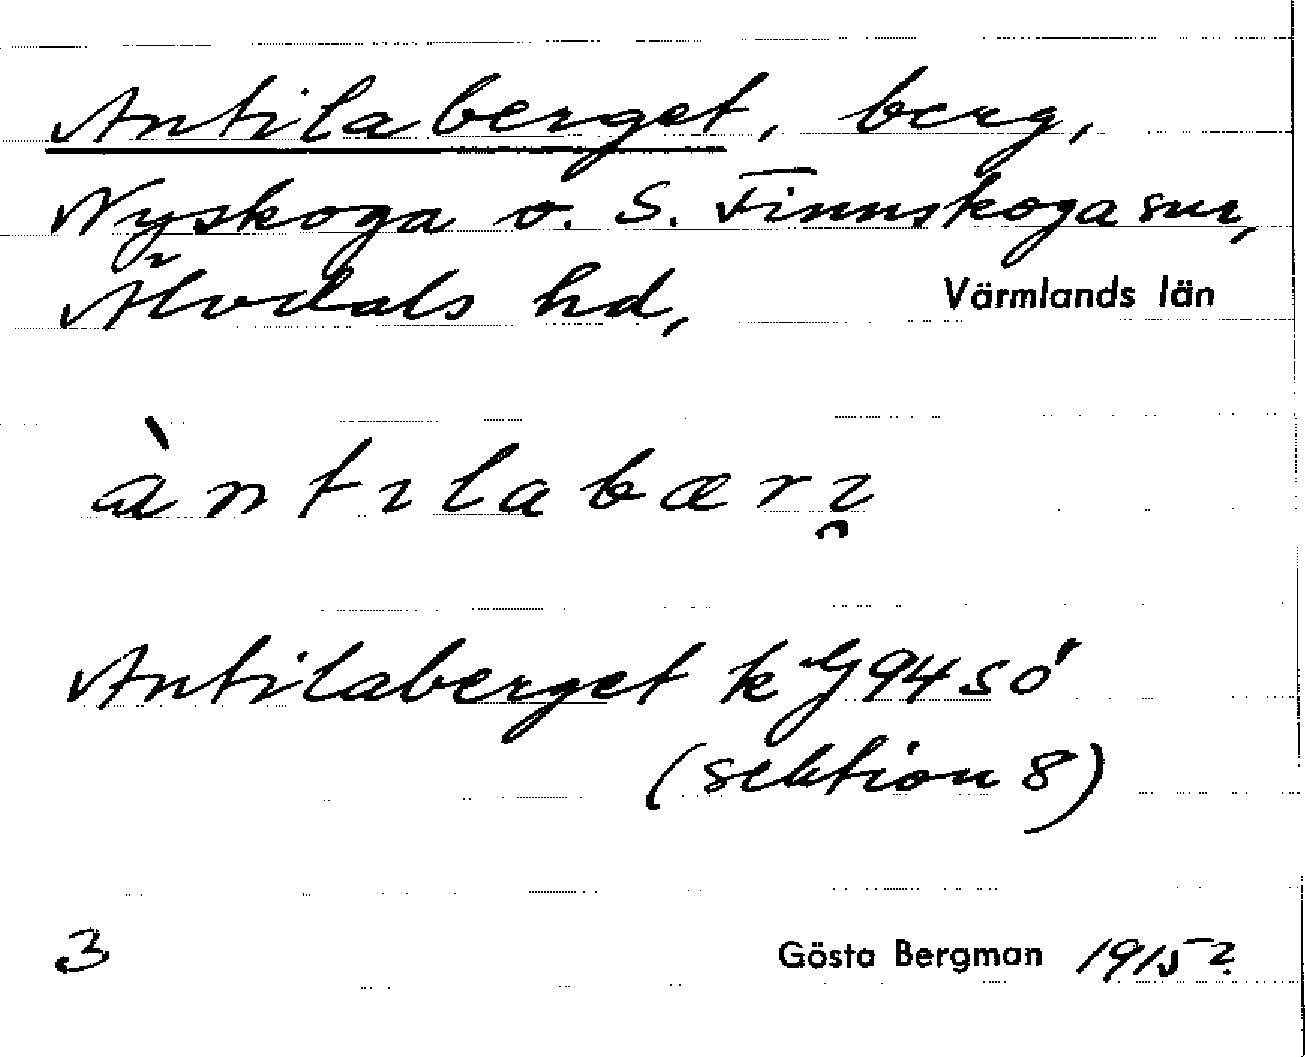 Antilaberget, berg,
Nyskoga o. S. Finnskoga snr,
Älvdals hd, Värmlands län
àntɩlabærɩ̯
Antilaberget k G 94 SÖ
(sektion 8)
3 Gösta Bergman 1915?